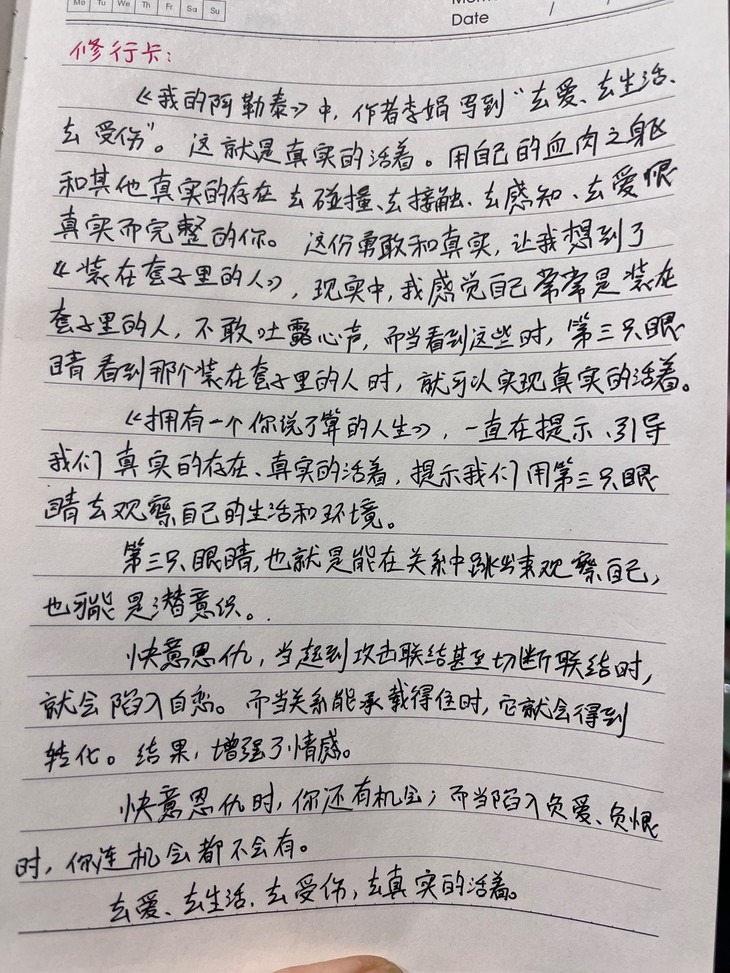 Mo Tu We Th Fr Sa Su
Date / /
修行卡：
《我的阿勒泰》中，作者李娟写到“去爱、去生活、
去受伤”。这就是真实的活着。用自己的血肉之身
和其他真实的存在去碰撞、去接触、去感知、去爱恨
真实而完整的你。这份勇敢和真实，让我想到了
《装在套子里的人》，现实中，我感觉自己常常是装在
套子里的人，不敢吐露心声，而当看到这些时，第三只眼
睛看到那个装在套子里的人时，就可以实现真实的活着。
《拥有一个你说了算的人生》，一直在提示、引导
我们真实的存在、真实的活着，提示我们用第三只眼
睛去观察自己的生活和环境。
第三只眼睛，也就是能在关系中跳出来观察自己，
也可能是潜意识。
快意恩仇，当起到攻击联结甚至切断联结时，
就会陷入自恋。而当关系能承载得住时，它就会得到
转化。结果，增强了情感。
快意恩仇时，你还有机会；而当陷入负爱、负恨
时，你连机会都不会有。
去爱、去生活、去受伤，去真实的活着。